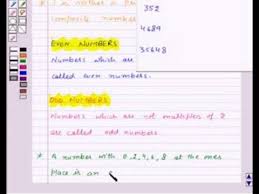 1 is neither a pri
composite number.
352
4689
35648
EVEN NUMBERS
Numbers which are
called even numbers.
ODD NUMBERS
Numbers which are not multiples of 2
are called odd numbers.
* A number with 0, 2, 4, 6, 8 at the ones
Place is an